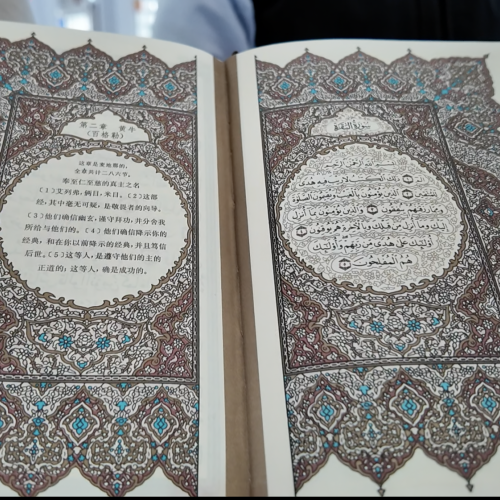 第二章 黄牛
（百格勒）
这章是麦地那的，
全章共计二八六节。
奉至仁至慈的真主之名
（1）艾列弗，俩目，米目。（2）这部
经，其中毫无可疑，是敬畏者的向导。
（3）他们确信幽玄，谨守拜功，并分舍我
所给与他们的。（4）他们确信降示你的
经典，和在你以前降示的经典，并且笃信
后世。（5）这等人，是遵守他们的主的
正道的；这等人，确是成功的。
سورة البقرة
بسم الله الرحمن الرحيم
الم ذلك الكتاب لا ريب فيه هدى
للمتقين الذين يؤمنون بالغيب ويقيمون الصلوة
ومما رزقنهم ينفقون والذين يؤمنون بما أنزل
إليك وما أنزل من قبلك وبالآخرة هم يوقنون
أولئك على هدى من ربهم وأولئك
هم المفلحون